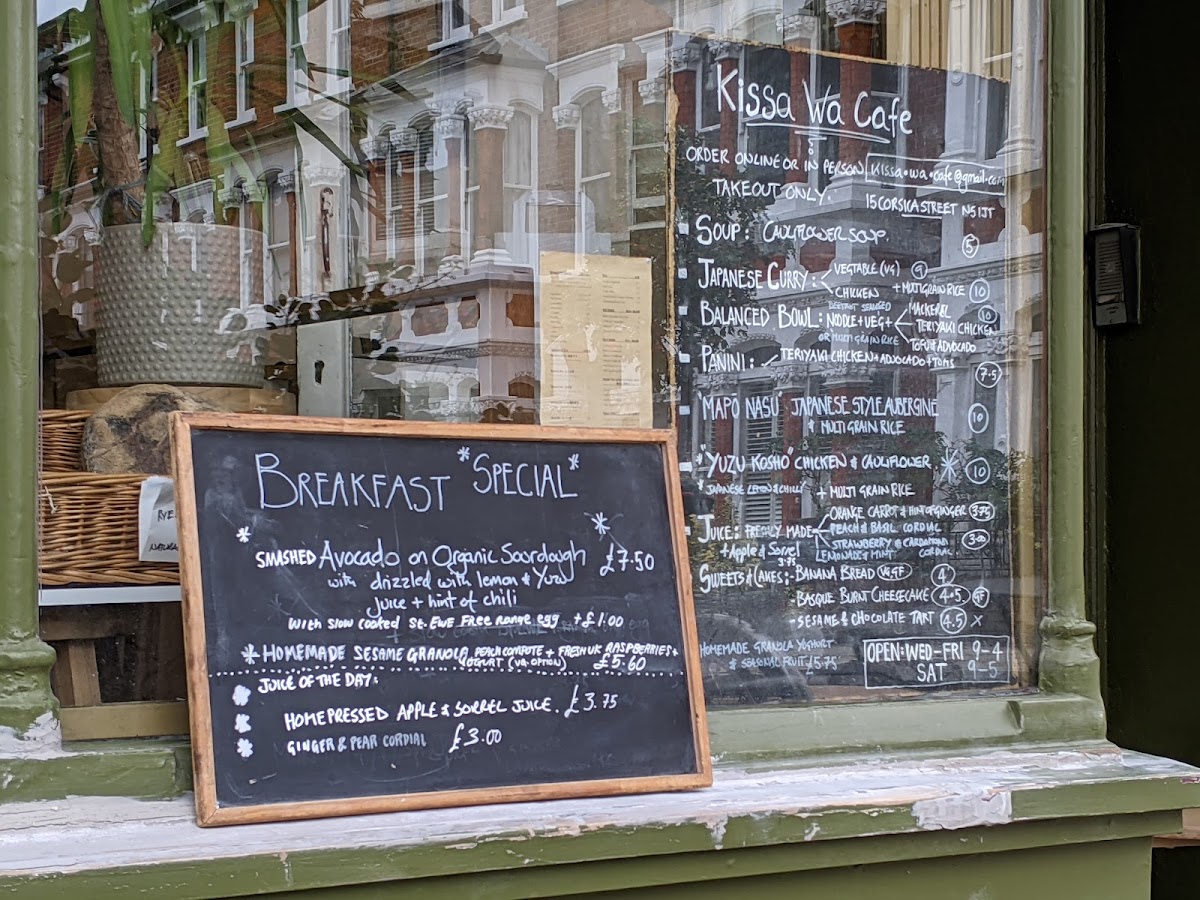 BREAKFAST *SPECIAL*
SMASHED Avocado on Organic Sourdough £7.50
with drizzled with lemon & Yuzu
Juice + hint of chili
with slow cooked St. EWE Free range egg + £1.00
HOMEMADE SESAME GRANOLA, PEACH COMPOTE + FRESH UK RASPBERRIES +
YOGURT (VG. OPTION) £5.60
JUICE OF THE DAY:
HOME PRESSED APPLE & SORREL JUICE. £3.75
GINGER & PEAR CORDIAL £3.00
RYE
Kissa Wa Cafe
ORDER ONLINE OR IN PERSON kissa.wa.cafe@gmail.com
TAKEOUT ONLY. 15 CORSICA STREET N5 1JT
SOUP: CAULIFLOWER SOUP. 5
JAPANESE CURRY: VEGTABLE (VG) 9
CHICKEN + MULTIGRAIN RICE 10
MACKEREL
BALANCED BOWL: NOODLE + VEG + TERIYAKI CHICKEN 10
OR MULTI GRAIN RICE TOFU & ADVOCADO
PANINI: TERIYAKI CHICKEN + ADVOCADO + TOMS 7.5
"MAPŌ NASU" JAPANESE STYLE AUBERGINE 10
& MULTI GRAIN RICE
"YUZU KOSHO" CHICKEN & CAULIFLOWER 10
* JAPANESE LEMON & CHILLI + MULTI GRAIN RICE
ORANGE CARROT & HINT OF GINGER 3.75
JUICE: FRESHLY MADE PEACH & BASIL CORDIAL
+ Apple & Sorrel 3.75 STRAWBERRY & CARDAMOM CORDIAL 3.00
LEMONADE & MINT
SWEETS & CAKES: - BANANA BREAD VG.GF 4
- BASQUE BURNT CHEESECAKE 4.5 GF
- SESAME & CHOCOLATE TART 4.5 X
HOMEMADE GRANOLA YOGHURT
& SEASONAL FRUIT £5.75
OPEN: WED-FRI 9-4
SAT 9-5